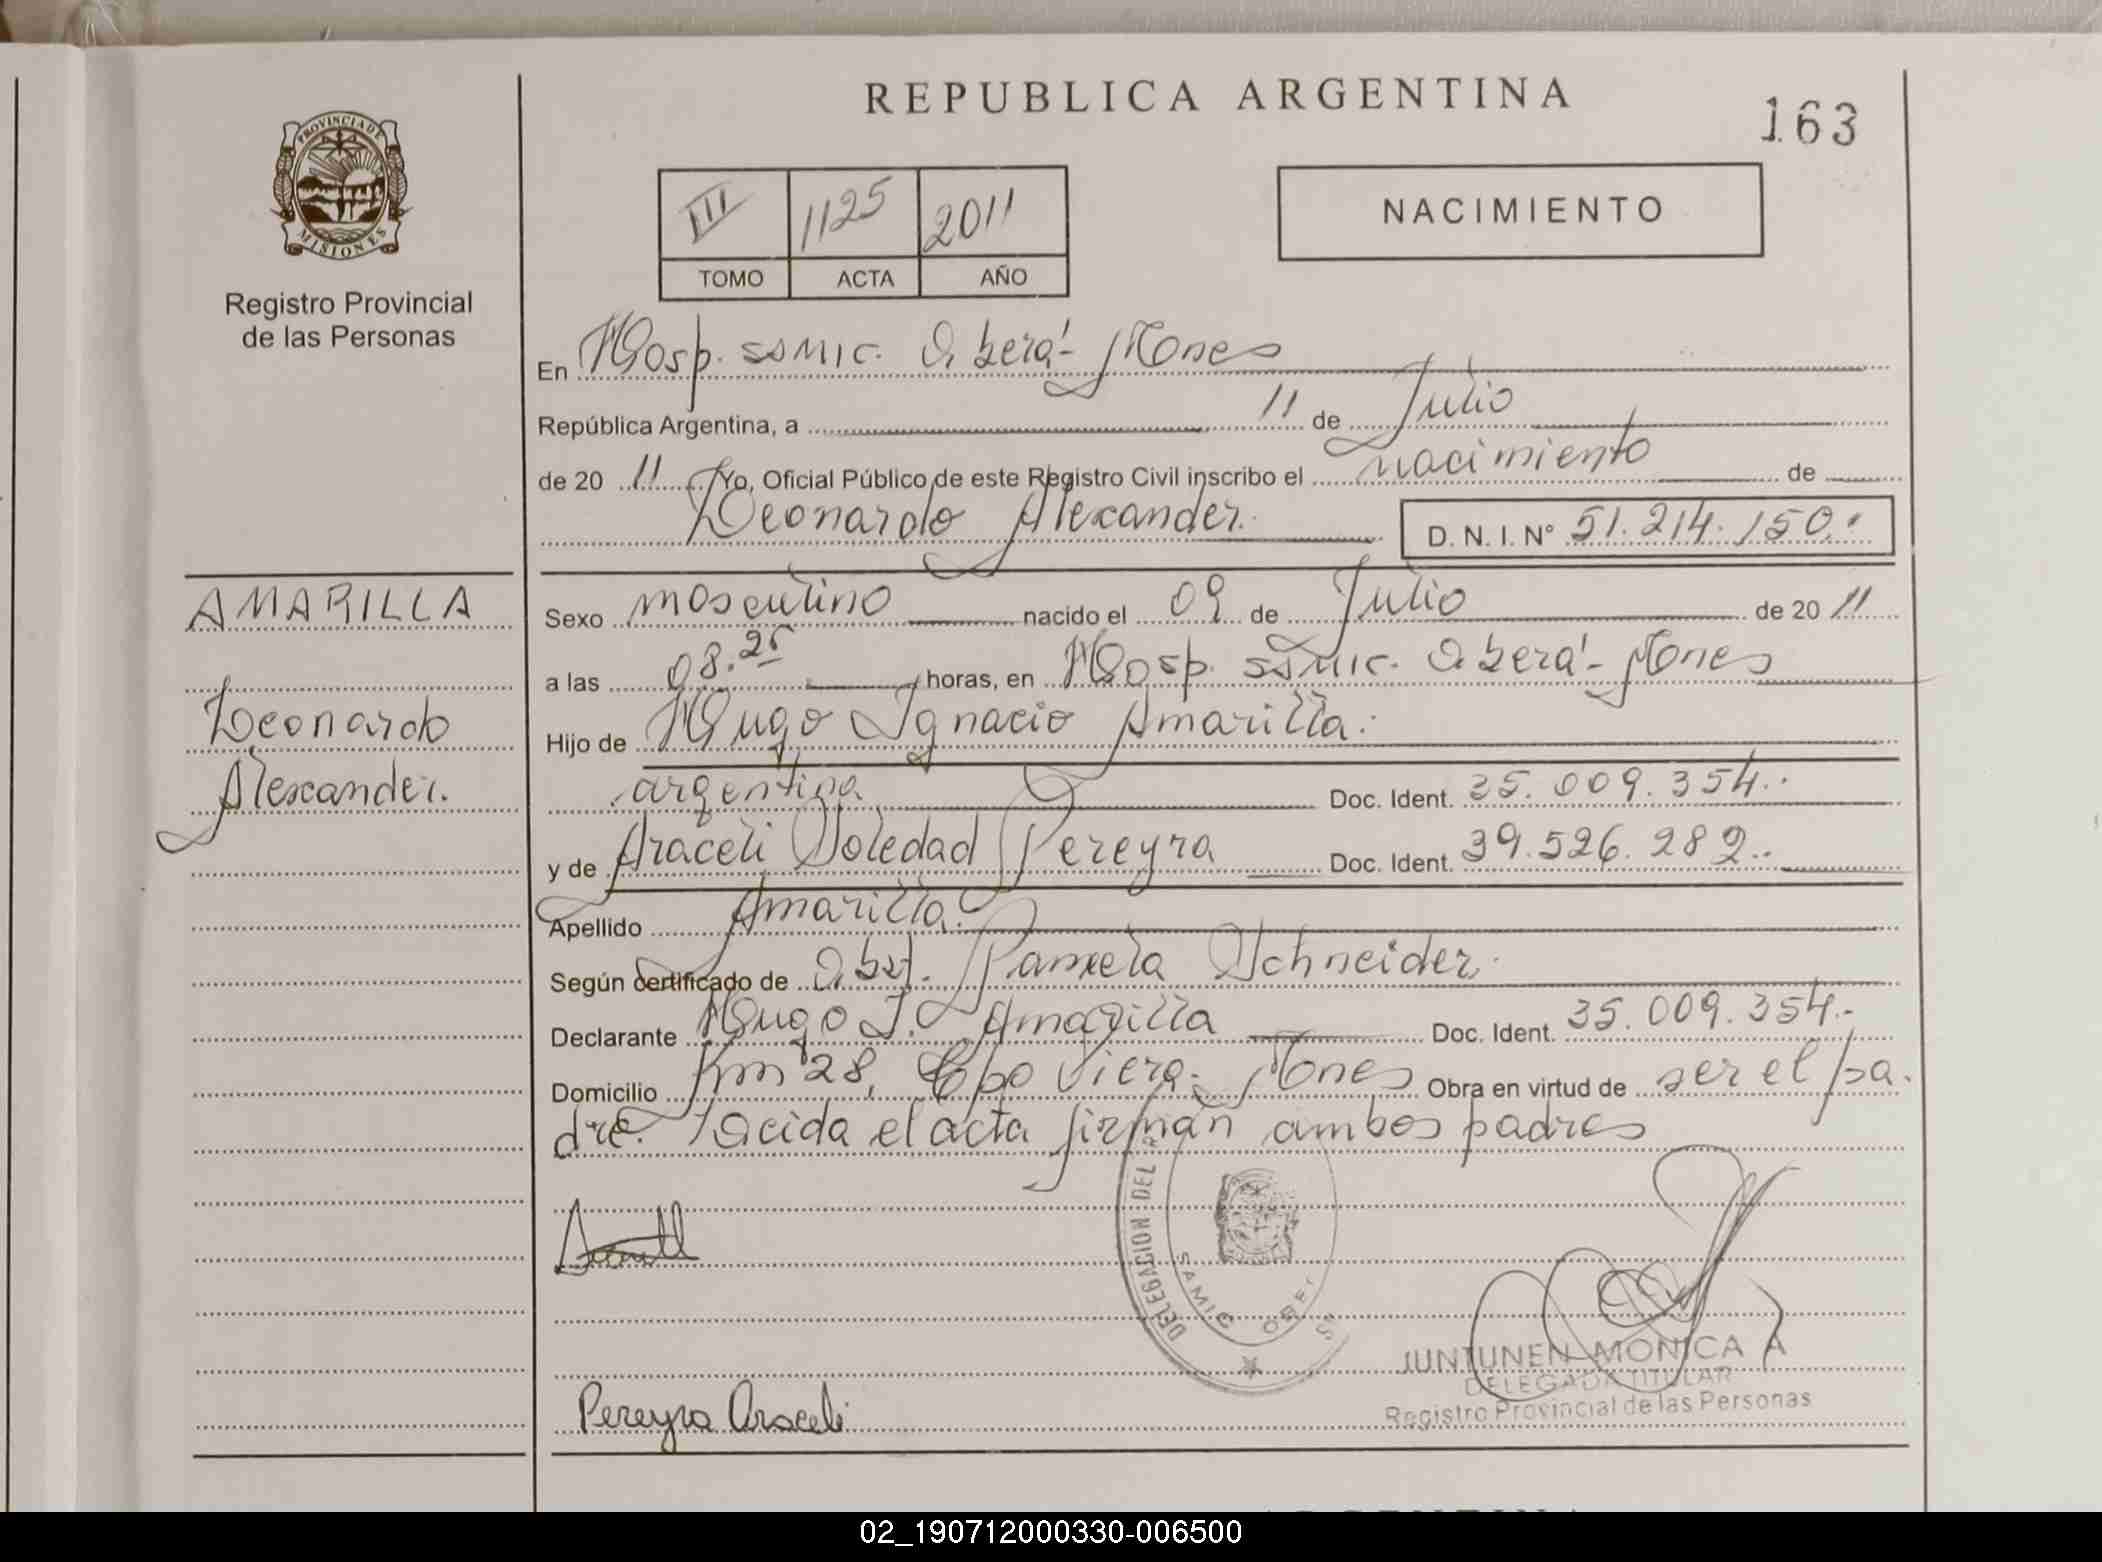 REPUBLICA ARGENTINA
163
PROVINCIA DE
MISIONES
Registro Provincial
de las Personas
III 1125 2011
TOMO ACTA AÑO
NACIMIENTO
En Hosp. SAMIC. Oberá - Mnes
República Argentina, a 11 de Julio
de 20 11 Yo, Oficial Público de este Registro Civil inscribo el nacimiento de
Leonardo Alexander. D. N. I. N° 51.214.150.
AMARILLA
Leonardo
Alexander.
Sexo masculino nacido el 09 de Julio de 20 11
a las 08.25 horas, en Hosp. SAMIC. Oberá - Mnes
Hijo de Hugo Ignacio Amarilla.
argentina Doc. Ident. 35.009.354.
y de Araceli Soledad Pereyra Doc. Ident. 39.526.282.
Apellido Amarilla.
Según certificado de Obst. Pamela Schneider.
Declarante Hugo I. Amarilla Doc. Ident. 35.009.354.-
Domicilio Km 28, Cpo Viera - Mnes Obra en virtud de ser el pa.
dre. Leida el acta firman ambos padres
DELEGACION DEL R
SAMIC OBE
Pereyra Araceli
JUNTUNEN MONICA A
DELEGADA TITULAR
Registro Provincial de las Personas
02_190712000330-006500